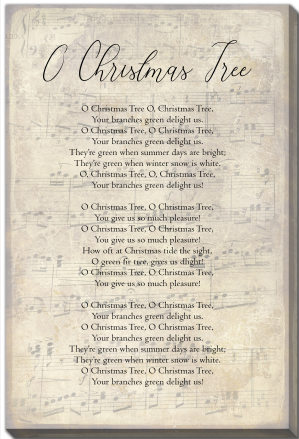 O Christmas Tree
O Christmas Tree O, Christmas Tree,
Your branches green delight us.
O Christmas Tree, O Christmas Tree,
Your branches green delight us.
They're green when summer days are bright;
They're green when winter snow is white.
O, Christmas Tree, O, Christmas Tree,
Your branches green delight us!
O Christmas Tree, O Christmas Tree,
You give us so much pleasure!
O Christmas Tree, O Christmas Tree,
You give us so much pleasure!
How oft at Christmas tide the sight,
O green fir tree, gives us dlight!
O Christmas Tree, O Christmas Tree,
You give us so much pleasure!
O Christmas Tree, O Christmas Tree,
Your branches green delight us.
O Christmas Tree, O Christmas Tree,
Your branches green delight us.
They're green when summer days are bright;
They're green when winter snow is white.
O Christmas Tree, O Christmas Tree,
Your branches green delight us!